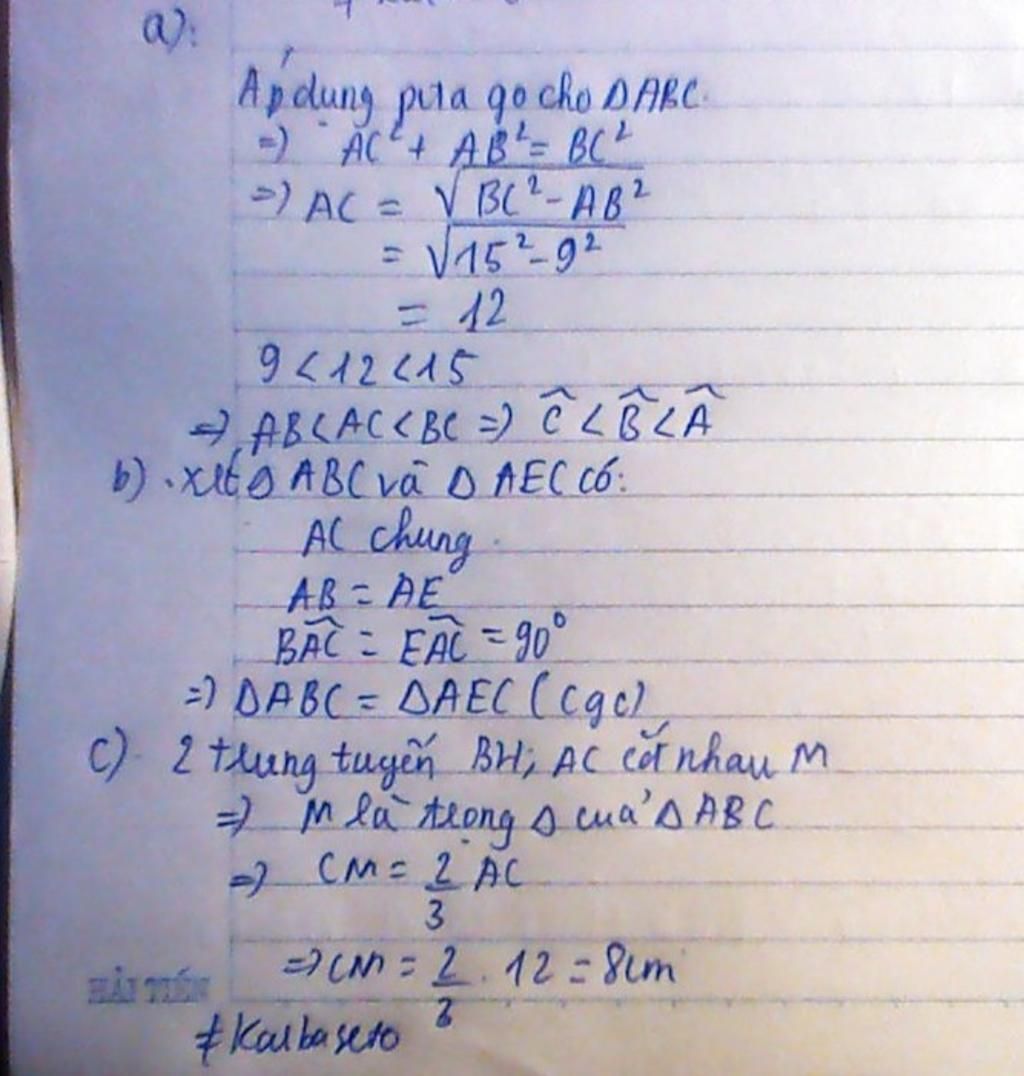 a):
Áp dụng pita go cho ΔABC.
=) AC² + AB² = BC²
=) AC = √BC² - AB²
= √15² - 9²
= 12
9 < 12 < 15
=) AB < AC < BC =) Ĉ < B̂ < Â
b) . xét Δ ABC và Δ AEC có:
AC chung
AB = AE
BAC = EAC = 90°
=) ΔABC = ΔAEC (cgc)
c) 2 trung tuyến BH; AC cắt nhau M
=) M là trọng Δ của ΔABC
=) CM = 2/3 AC
=) CM = 2/3 . 12 = 8cm
HẢI TIẾN